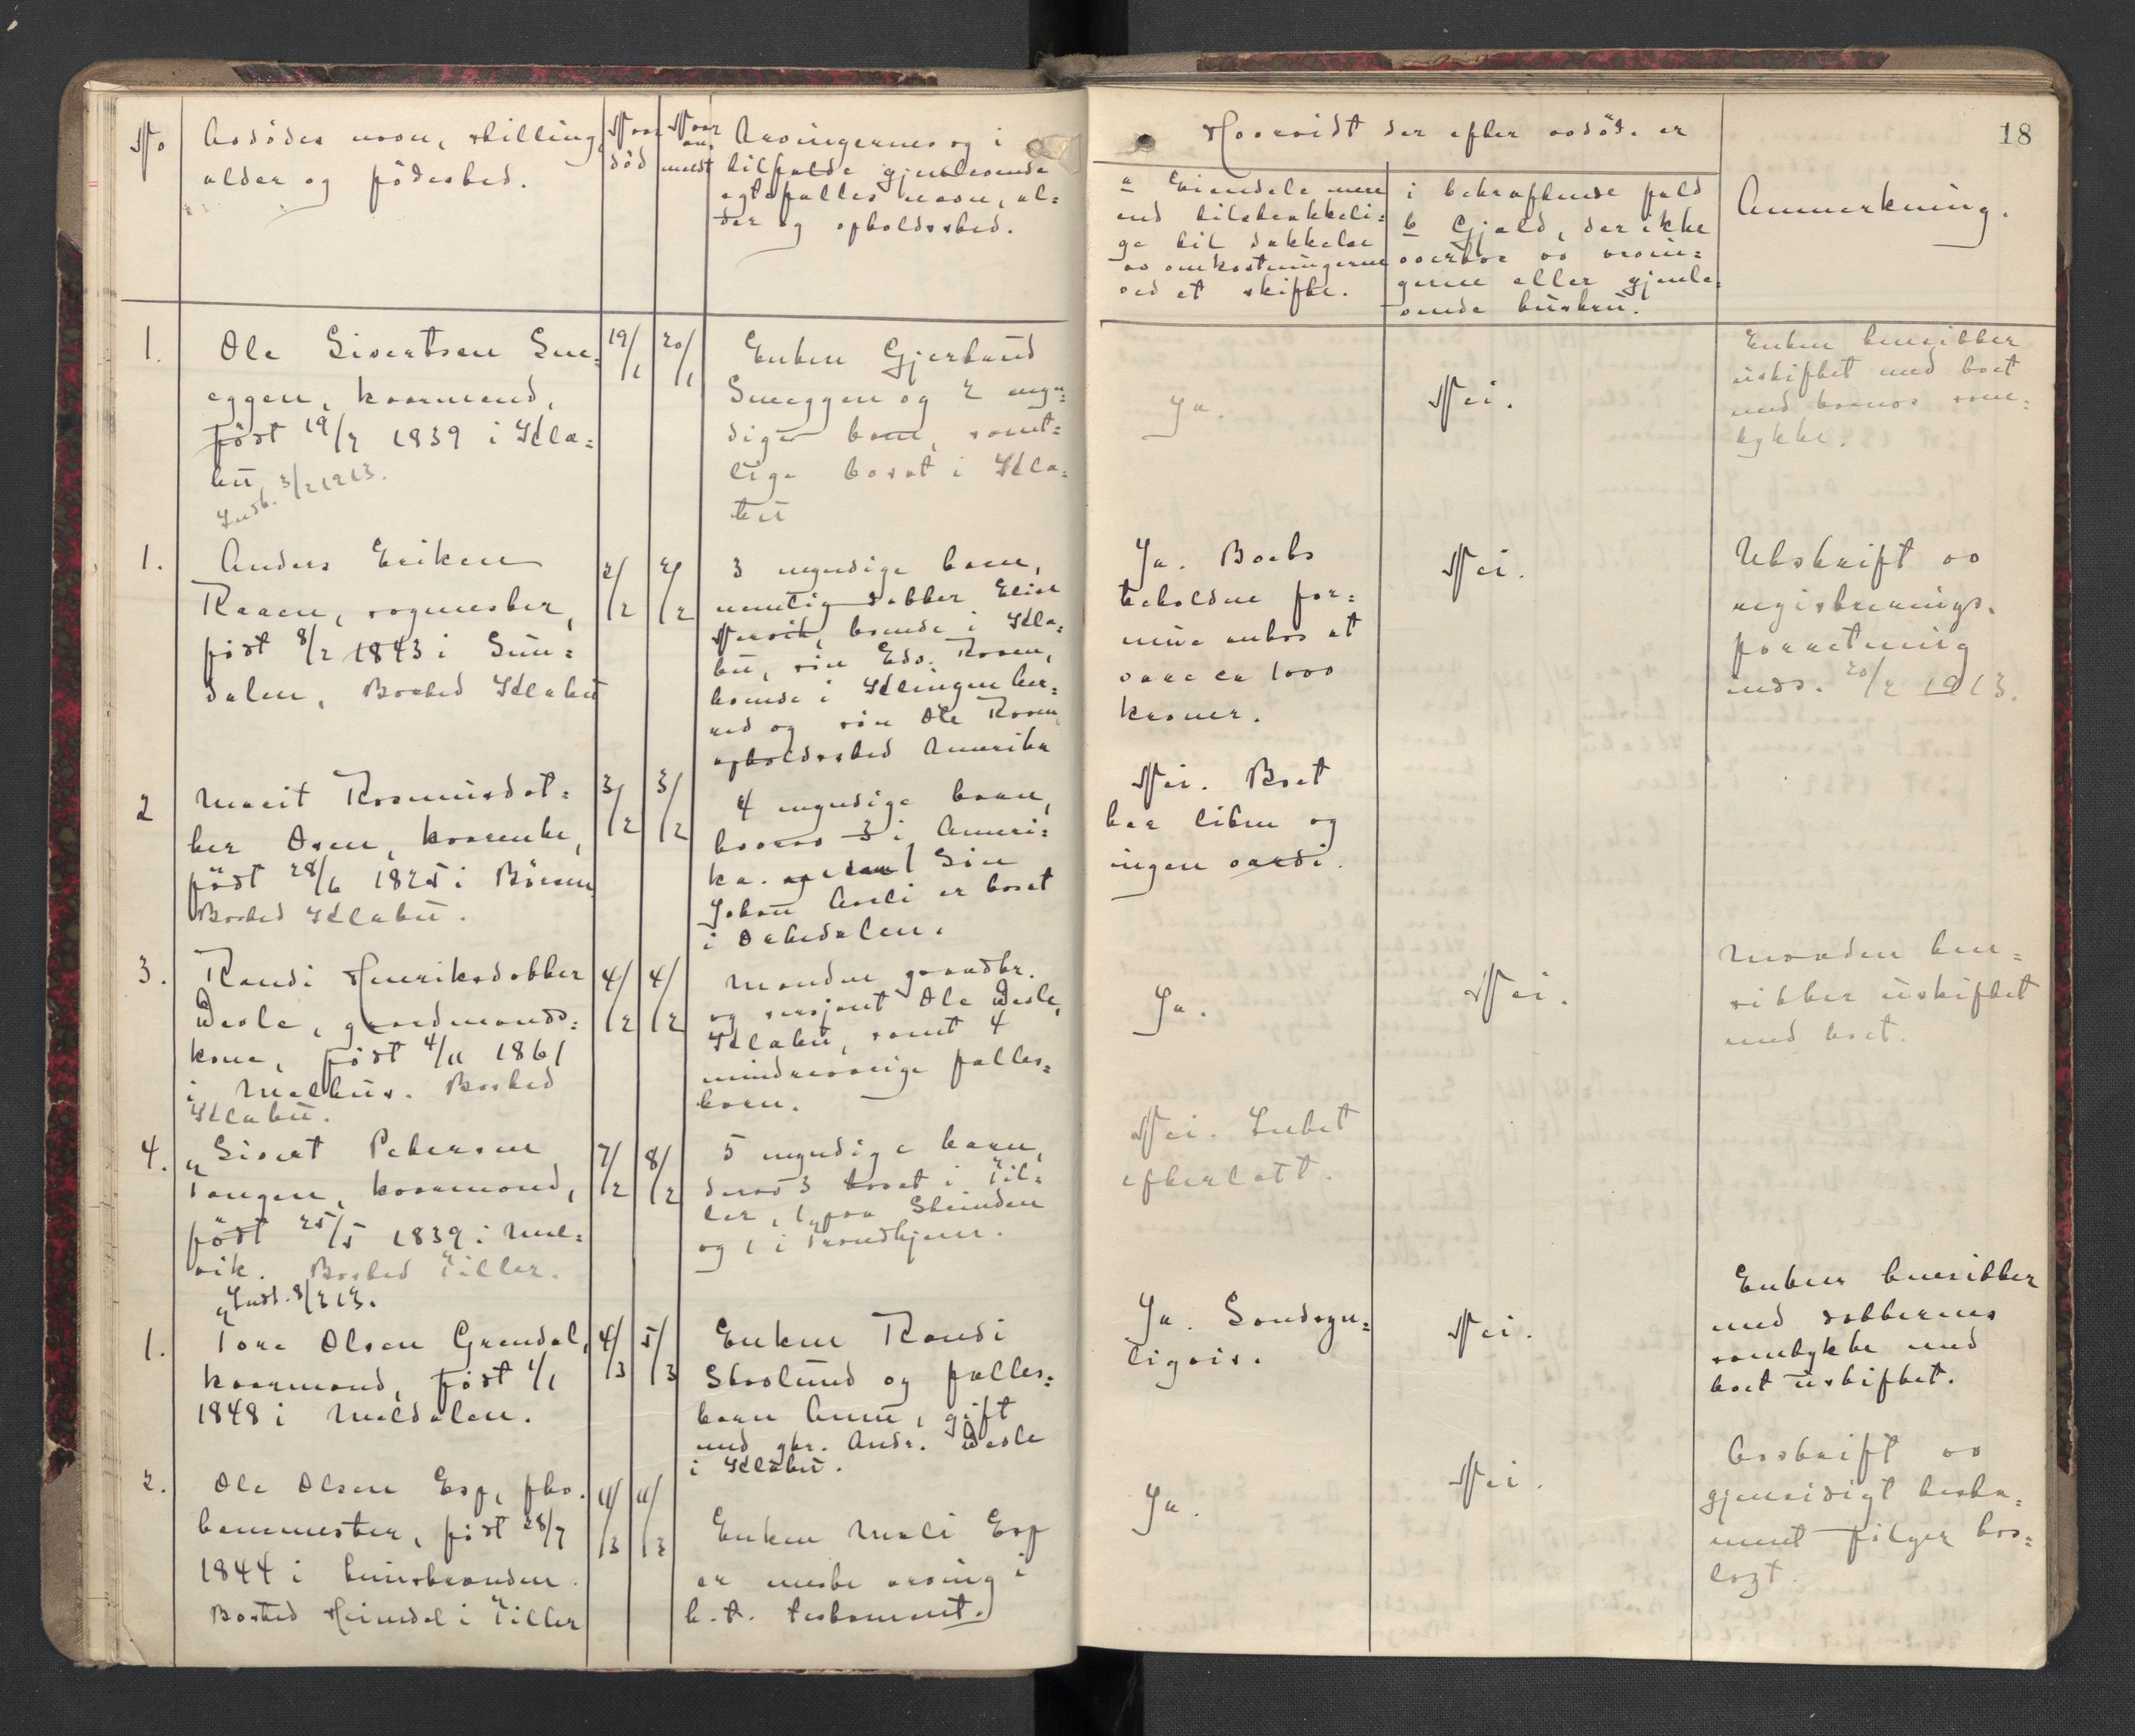 No
Avdödes navn, stilling,
alder og födested.
Naar
död
Naar
an-
meldt
Arvingernes og i
tilfælde gjenlevende
egtefælles navn, al=
der og opholdssted.
Hvorvidt der efter avdöde er
18
a Eiendele mere
end tilstrækkeli=
ge til dækkelse
av omkostningerne
ved et skifte.
i bekræftende fald
b Gjæld, der ikke
overtas av arvin=
gerne eller gjenle=
vende
Anmerkning.
1.
Ole Sivertsen Sne=
eggen, kaarmand,
född 19/7 1839 i Klæ=
bu
Indb. 3/2 1913.
19/1
20/1
Enken Gjertrud
Sneeggen og 2 myn=
dige barn, samt=
lige bosat i Klæ=
bu
Ja.
Nei.
Enken hensitter
uskiftet med boet
med barnas sam=
tykke.
1.
Anders Eriksen
Raaen, vognmester,
född 8/2 1843 i Sun=
dalen, Bosted Klæbu
2/2
2/2
3 myndige barn,
nemlig datter Elise
boende i Klæ=
bu, sön Edv. Raaen,
boende i Klingen her=
red og sön Ole Raaen,
opholdssted Amerika
Ja. Boets
beholdne for=
mue antas at
være ca 1000
kroner.
Nei.
Utskrift av
registrerings-
forretning
inds. 20/2 1913.
2
Marit Rasmusdat=
ter Osen, kaarenke,
född 28/6 1825 i Börsen
Bosted Klæbu.
3/2
3/2
4 myndige barn,
hvorav 3 i Ameri=
ka. 1 Sön
Johan Aseli er bosat
i Orkedalen.
Nei. Boet
har liten og
ingen værdi.
3.
Randi Henriksdatter
Wesle, gaardmands=
kone, född 4/11 1861
i Melhus. Bosted
Klæbu.
4/2
4/2
Manden gaardbr.
og sersjant Ole Wesle,
Klæbu, samt 4
mindreaarige fælles=
barn.
Ja.
Nei.
Manden hen=
sitter uskiftet
med boet.
4.
Sivert Petersen
Tangen, kaarmand,
född 25/5 1839 i Mal=
vik. Bosted Tiller.
Indb. 8/3 13.
7/2
8/2
5 myndige barn,
derav 3 bosat i Til=
ler, 1 paa Strinden
og 1 i Trondhjem.
Nei. Intet
efterlatt.
1.
Tore Olsen Grendal,
kaarmand, född 1/1
1848 i Meldalen.
4/3
5/3
Enken Randi
Skoslund og fælles=
barn Anne, gift
med gbr. Andr. Wesle
i Klæbu.
Ja. Sandsyn=
ligvis.
Nei.
Enken hensitter
med datterens
samtykke med
boet uskiftet.
2.
Ole Olsen Esp, fhv.
banemester, född 28/7
1844 i Leinstranden.
Bosted Heimdal i Tiller
11/3
11/3
Enken Mali Esp
er eneste arving i
h.t. testament.
Ja.
Nei.
Avskrift av
gjensidigt testa=
ment fölger ved=
lagt.